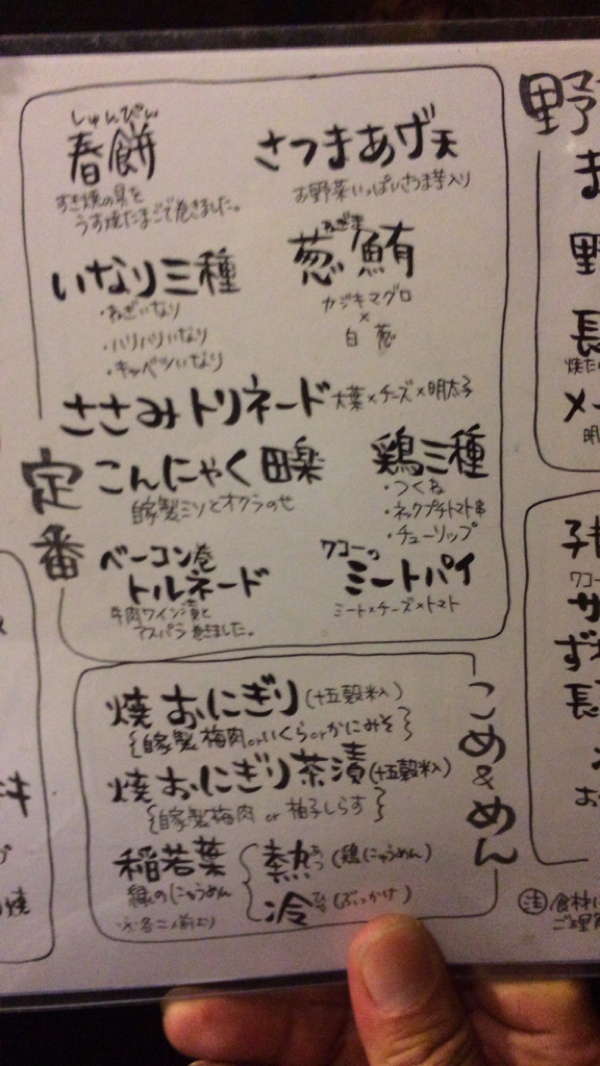 定番
しゅんぴん
春餅
すき焼の具を
うす焼たまごで巻きました。
さつまあげ天
お野菜いっぱいさつま芋入り
いなり三種
・ねぎいなり
・ハリハリいなり
・キャベツいなり
ねぎま
葱鮪
カジキマグロ
×
白葱
ささみトリネード 大葉×チーズ×明太子
こんにゃく田楽
自家製ミソとオクラのせ
鶏三種
・つくね
・ネックプチトマト串
・チューリップ
ベーコン巻
トルネード
牛肉ワイン漬と
アスパラ巻きました。
ワコーの
ミートパイ
ミート×チーズ×トマト
こめ&めん
焼おにぎり(十五穀米入)
{自家製梅肉orいくらorかにみそ}
焼おにぎり茶漬(十五穀米入)
{自家製梅肉 or 柚子しらす}
稲若葉
緑のにゅうめん
※各二人前より
熱あつ(鶏にゅうめん)
冷ひや(ぶっかけ)
野
長
メー
明
子
ワコー
サ
ず
長
お
注 食材に